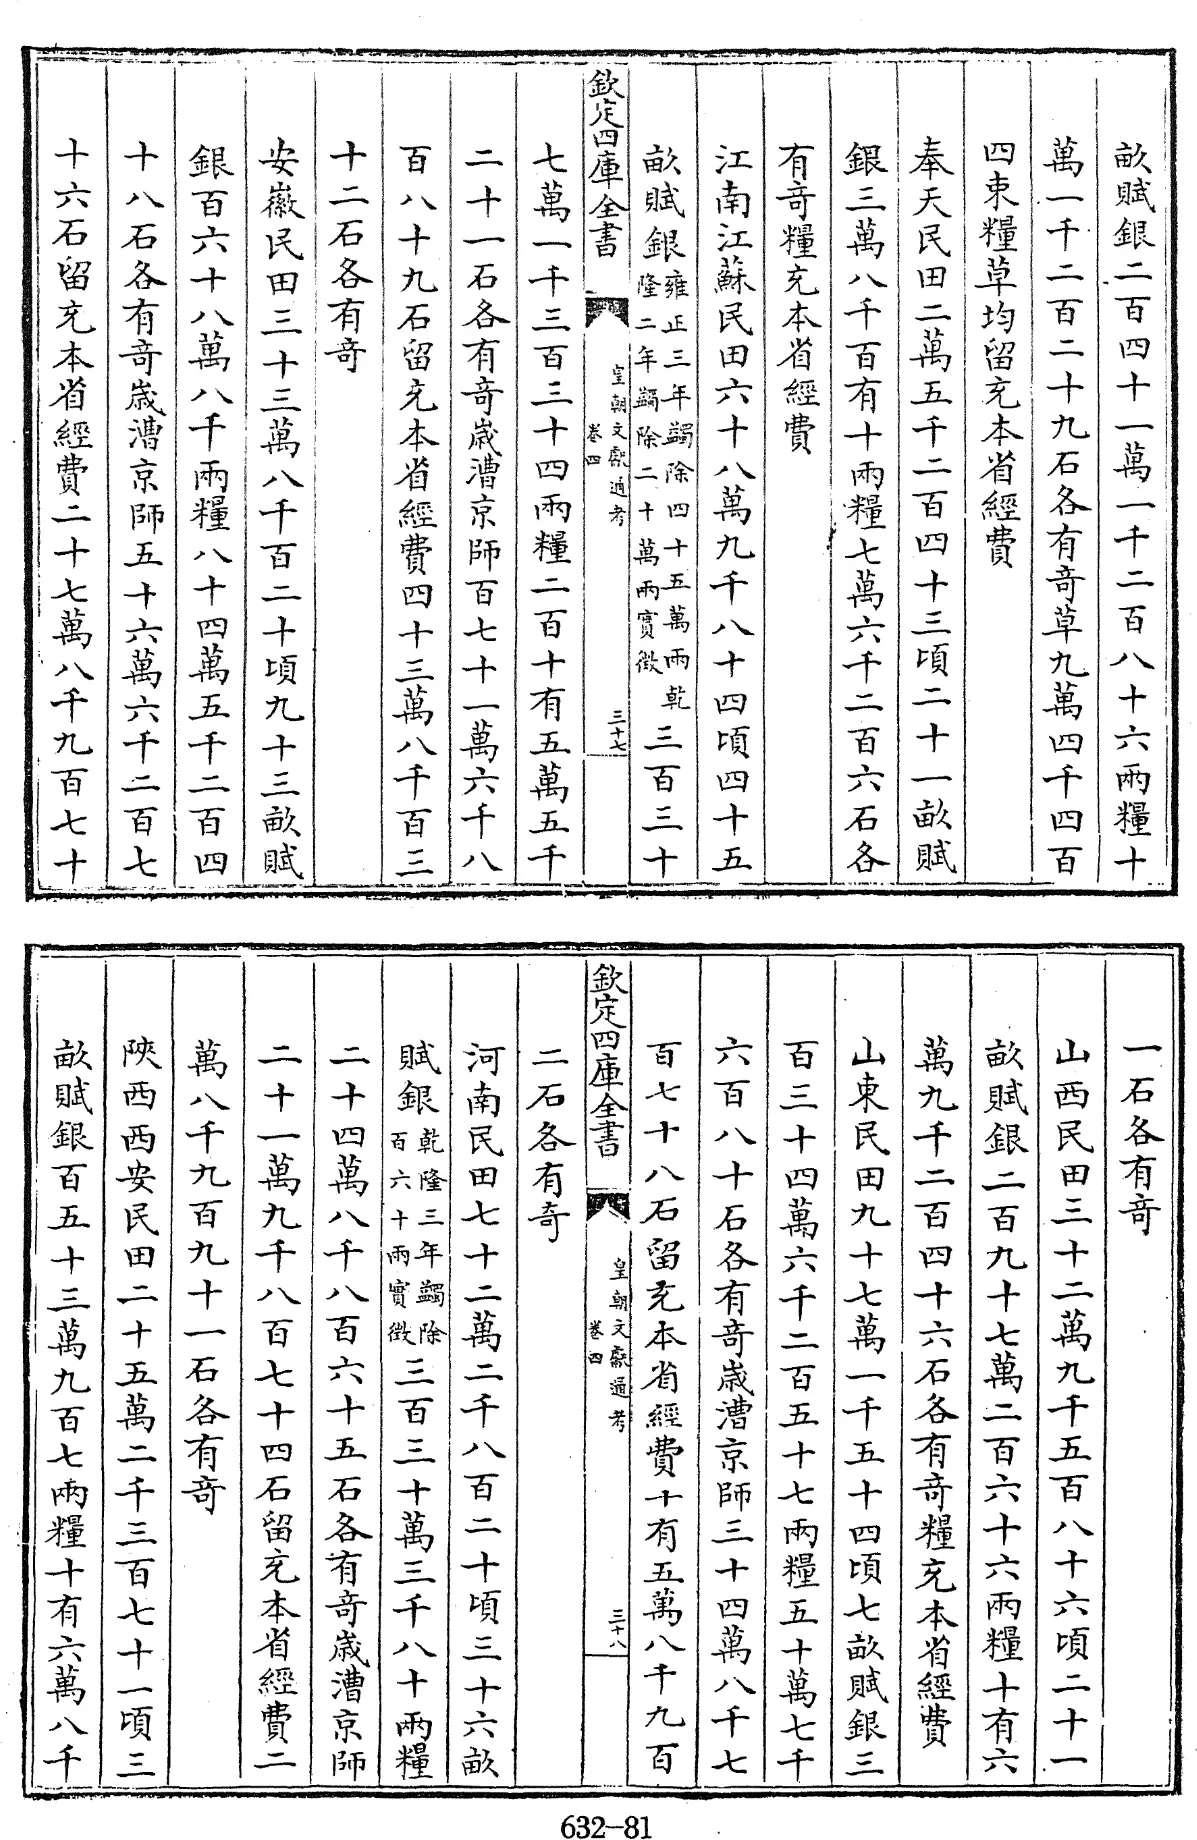 畝賦銀二百四十一萬一千二百八十六兩糧十
萬一千二百二十九石各有奇草九萬四千四百
四束糧草均留充本省經費
奉天民田二萬五千二百四十三頃二十一畝賦
銀三萬八千百有十兩糧七萬六千二百六石各
有奇糧充本省經費
江南江蘇民田六十八萬九千八十四頃四十五
畝賦銀雍正三年蠲除四十五萬兩乾隆二年蠲除二十萬兩實徵三百三十
欽定四庫全書
皇朝文獻通考
卷四
三十七
七萬一千三百三十四兩糧二百十有五萬五千
二十一石各有奇歲漕京師百七十一萬六千八
百八十九石留充本省經費四十三萬八千百三
十二石各有奇
安徽民田三十三萬八千百二十頃九十三畝賦
銀百六十八萬八千兩糧八十四萬五千二百四
十八石各有奇歲漕京師五十六萬六千二百七
十六石留充本省經費二十七萬八千九百七十
一石各有奇
山西民田三十二萬九千五百八十六頃二十一
畝賦銀二百九十七萬二百六十六兩糧十有六
萬九千二百四十六石各有奇糧充本省經費
山東民田九十七萬一千五十四頃七畝賦銀三
百三十四萬六千二百五十七兩糧五十萬七千
六百八十石各有奇歲漕京師三十四萬八千七
百七十八石留充本省經費十有五萬八千九百
欽定四庫全書
皇朝文獻通考
卷四
三十八
二石各有奇
河南民田七十二萬二千八百二十頃三十六畝
賦銀乾隆三年蠲除百六十兩實徵三百三十萬三千八十兩糧
二十四萬八千八百六十五石各有奇歲漕京師
二十一萬九千八百七十四石留充本省經費二
萬八千九百九十一石各有奇
陝西西安民田二十五萬二千三百七十一頃三
畝賦銀百五十三萬九百七兩糧十有六萬八千
632-81